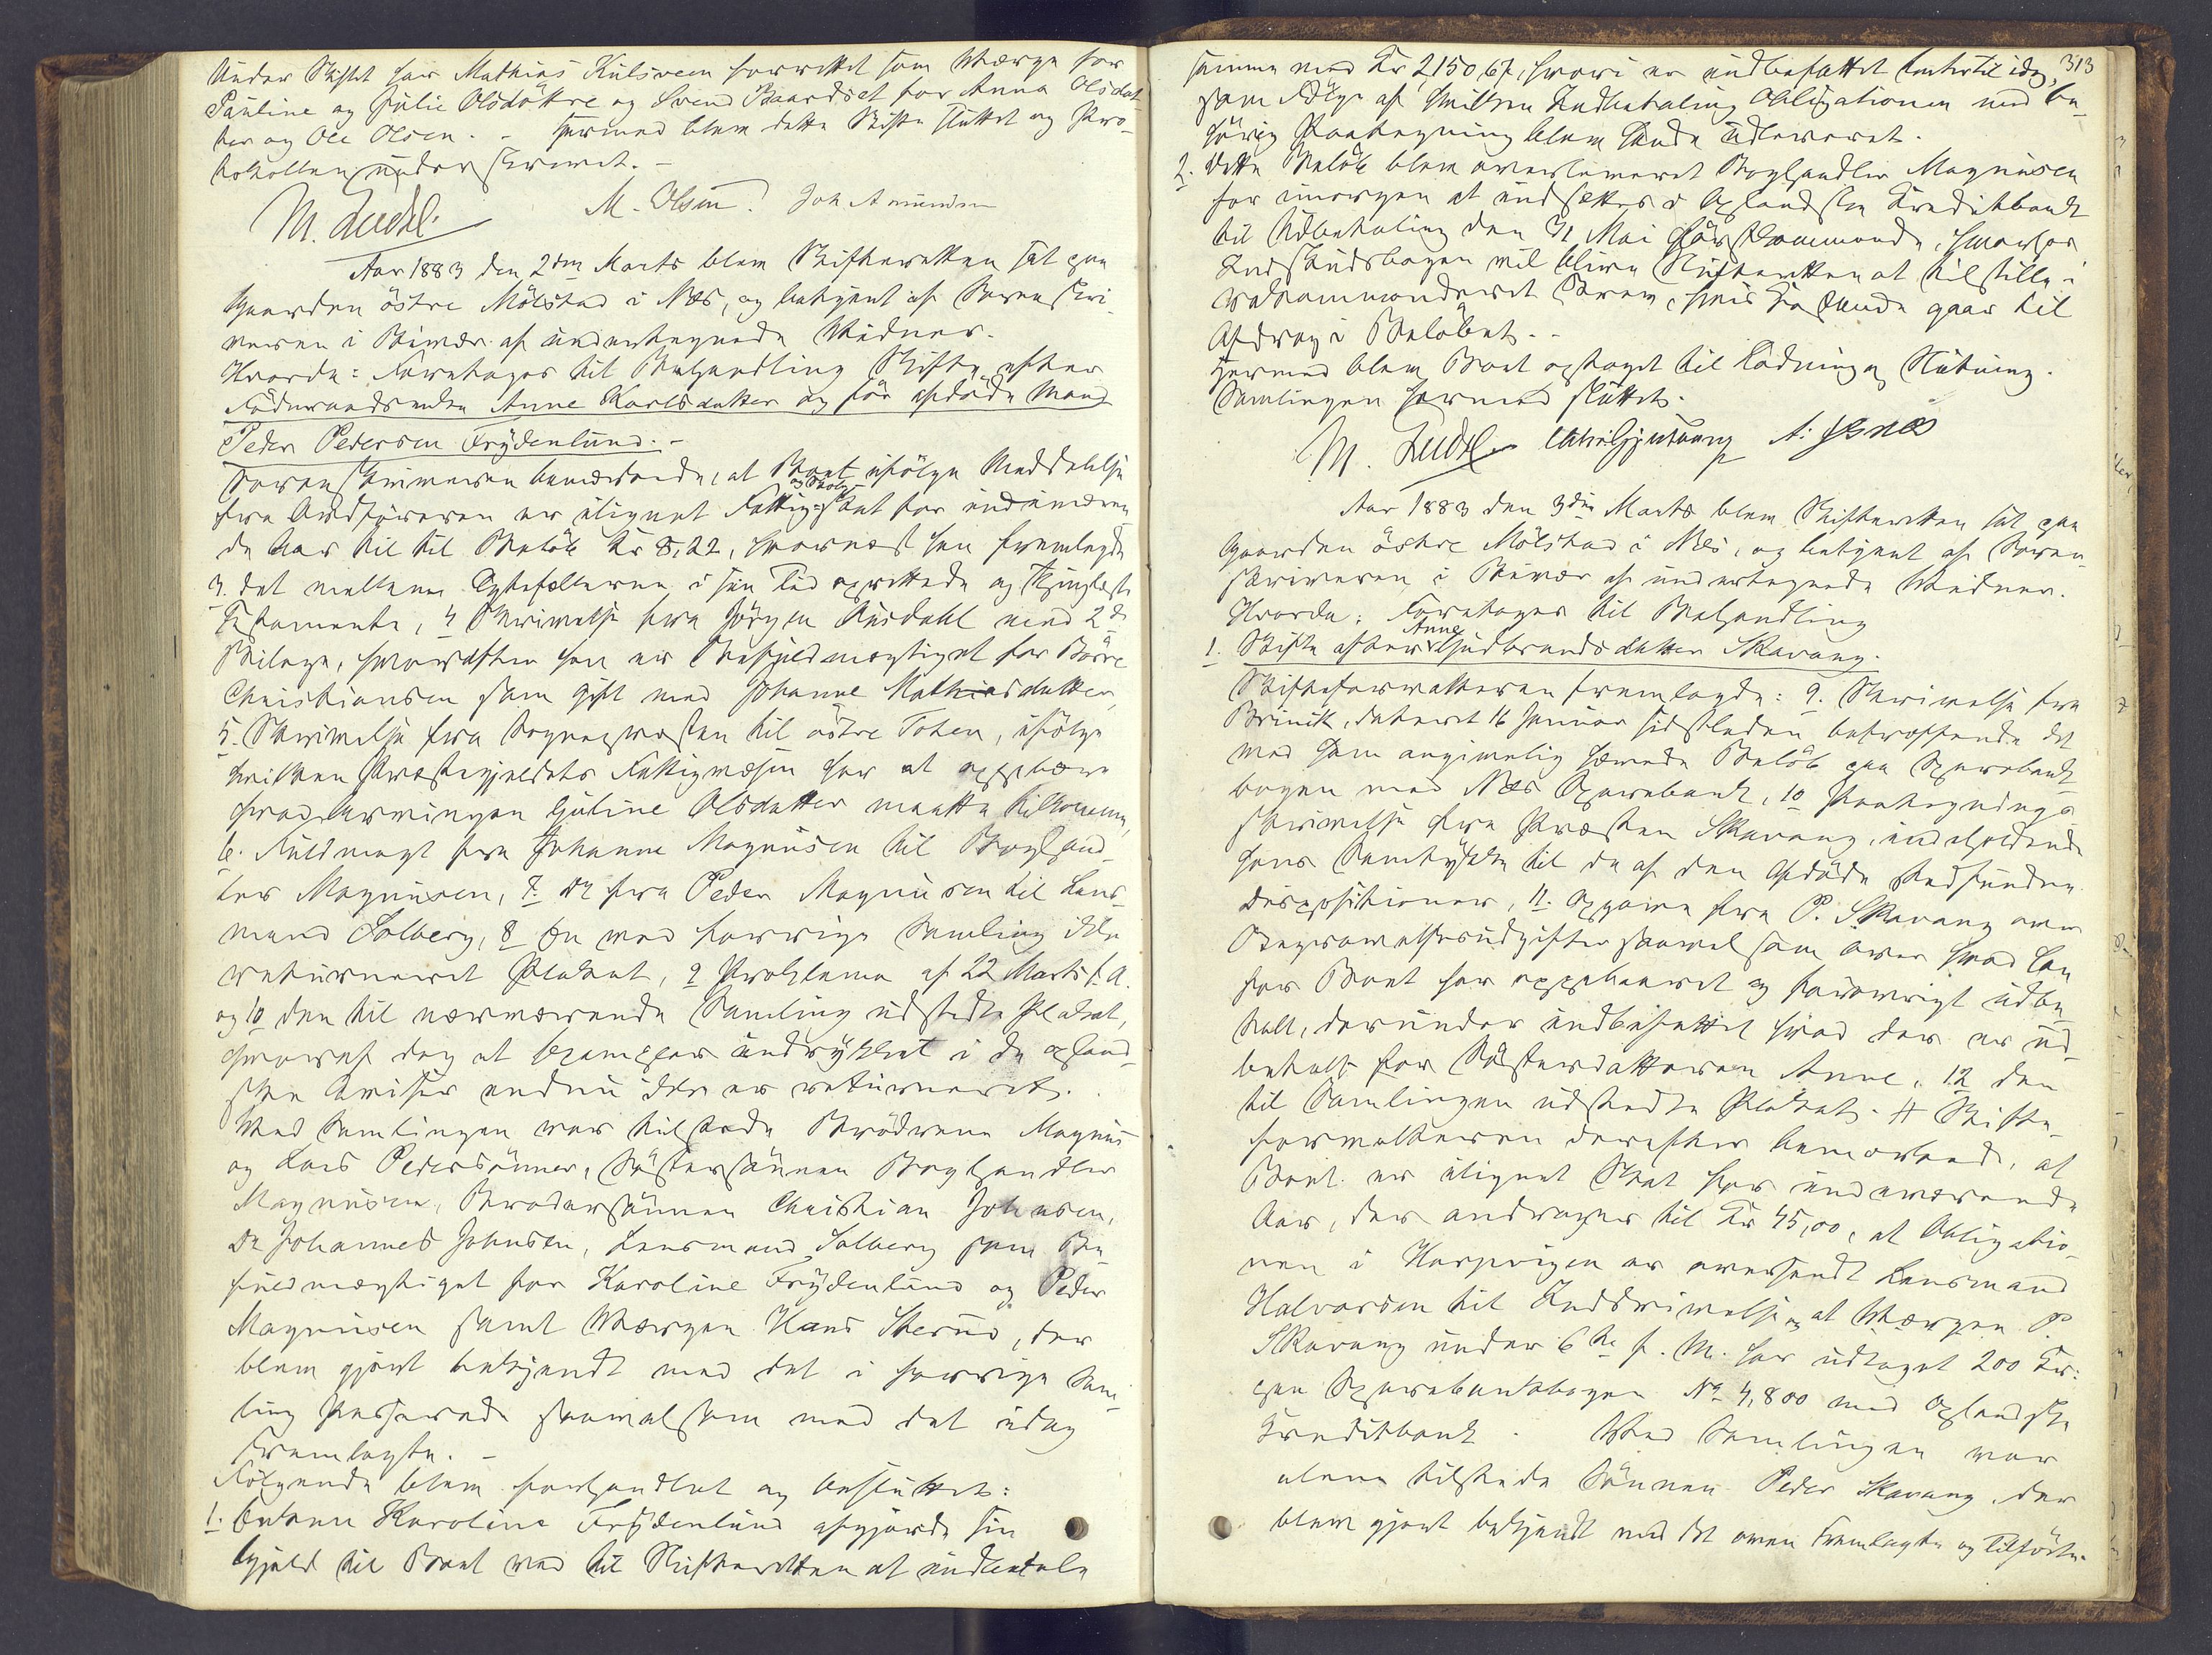 Under Skiftet har Mathias Kulsveen forrettet som Værge for
Pauline og Julie Olsdöttre og Svend Baardset for Anna Olsdat
ter og Ole Olsen. - Hermed blev dette Skifte sluttet og Pro-
tokollen underskrevet. -
M. Ludvl. M. Olsen. Joh Amundsen
Aar 1883 den 2den Marts blev Skifteretten sat paa
Gaarden östre Mölstad i Næs, og betjent af Sorenskri-
veren i Overvær af undertegnede Vidner.
Hvorda: Foretages til Behandling Skifte efter
Föderaadsenken Anne Karlsdatter og før afdöde Mand
Peder Pedersen Frydenlund. -
Sorenskriveren bemærkede, at Boet ifölge Meddelelse
og Skole-
fra Ordföreren er ilignet Fattigskat for indeværen
de Aar til til Belöb Kr 8,22, hvornæst han fremlagde
3. det mellem Ægtefællerne i sin Tid oprettede og Thinglæste
Testamente, 4 Skrivelse fra Jörgen Ausdahl med 2 de
Bilage, hvorefter han er Befuldmægtiget for Börre
Christiansen som gift med Johanne Mathiasdatter,
5. Skrivelse fra Sognepræsten til östre Toten, ifölge
hvilken Præstegjeldets Fattigvæsen har at oppebære
hvad Arvingen Eline Olsdatter maatte tilkomme,
6. Fuldmagt fra Johanne Magnusen til Boghand-
ler Magnusen, 7. do fra Peder Magnusen til Lens-
mand Solberg, 8 den med forrige Samling ikke
returneret Plakat, 9 Proklama af 22 Marts f. A.
og 10 den til nærværende Samling udstedte Plakat,
hvoraf dog et Exemplar indrykket i de opland-
ske Aviser endnu ikke er returneret.
Ved Samlingen var tilstede Brödrene Magnus
og Lars Pedersönner, Söstersönnen Boghandler
Magnusen, Brodersönnen Christian Johnsen,
do Johannes Johnsen, Lensmand Solberg som Be-
fuldmægtiget for Karoline Frydenlund og Peder
Magnusen samt Værgen Hans Skerud, der
blev gjort bekjendt med det i forrige Sam-
ling Passerede saavelsom med det idag
Fremlagte. -
Fölgende blev forhandlet og besluttet:
1. Enken Karoline Frydenlund afgjorde sin
Gjeld til Boet ved til Skifteretten at indbetale
313
summa med Kr 2150,67, hvori er indbefattet Renter til idag,
som Fölge af hvilken Indbetaling Obligationen med be-
hörig Paategning blev hende udleveret.
2. Dette Belöb blev overleveret Boghandler Magnusen
for imorgen at indsættes i Oplandske Kreditbank
til Udbetaling den 31 Mai förstkommende, hvorfor
Indskudsbogen vil blive Skifteretten at tilstille i
rekommanderet Brev, hvis Porto gaar til
Afdrag i Belöbet. -
Hermed blev Boet optaget til Lodning og Slutning.
Samlingen hermed sluttet.
M. Ludvl. A. Hsnæs
Aar 1883 den 3die Marts blev Skifteretten sat paa
Gaarden östre Mölstad i Næs, og betjent af Soren-
skriveren i Overvær af undertegnede Vidner.
Hvorda: Foretages til Behandling
Anne
1. Skifte efter Gudbrandsdatter Skavang.
Skifteforvalteren fremlagde: 9. Skrivelse fra
Brinik, dateret 16 Januar sidstleden betræffende det
ved ham angivelig hævede Belöb paa Sparebank
bogen med Næs Sparebank, 10 Paategnings-
skrivelse fra Præsten Skavang, indeholdende
hans Samtykke til de af den Afdöde stedfundne
Dispositioner, 11. Opgave fra P. Skavang over
Begravelsesudgifter saavelsom over hvad han
for Boet har oppebaaret og forövrigt udbe-
talt, derunder indbefattet hvad der er ud-
betalt for Sösterdatteren Anne, 12 den
til Samlingen udstedte Plakat. # Skifte-
forvalteren derefter bemærkede, at
Boet er ilignet Skat for indeværende
Aar, der andrager til Kr 45,00, at Obligatio-
nen i Harpvigen er oversendt Lensmand
Halvorsen til Inddrivelse og at Værgen P.
Skavang under 6te f. M. har udtaget 200 Kr:
paa Sparebankbogen No 4,800 med Oplandske
Kreditbank. Ved Samlingen var
alene tilstede Sönnen Peder Skavang, der
blev gjort bekjendt med det oven Fremlagte og Tilförte.